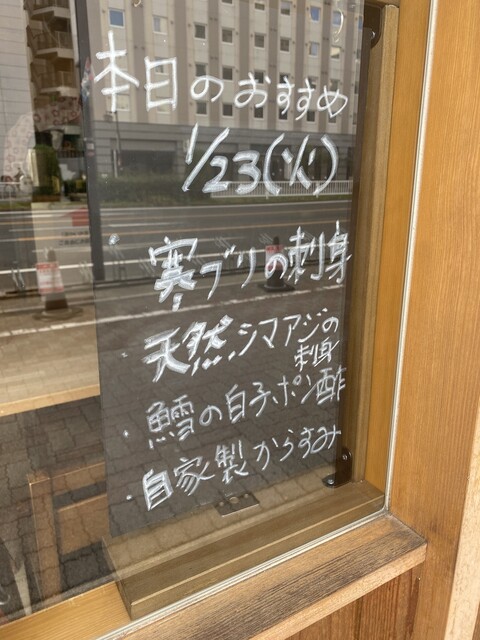 本日のおすすめ
1/23(火)
寒ブリの刺身
・天然シマアジの
刺身
・鱈の白子ポン酢
・自家製からすみ